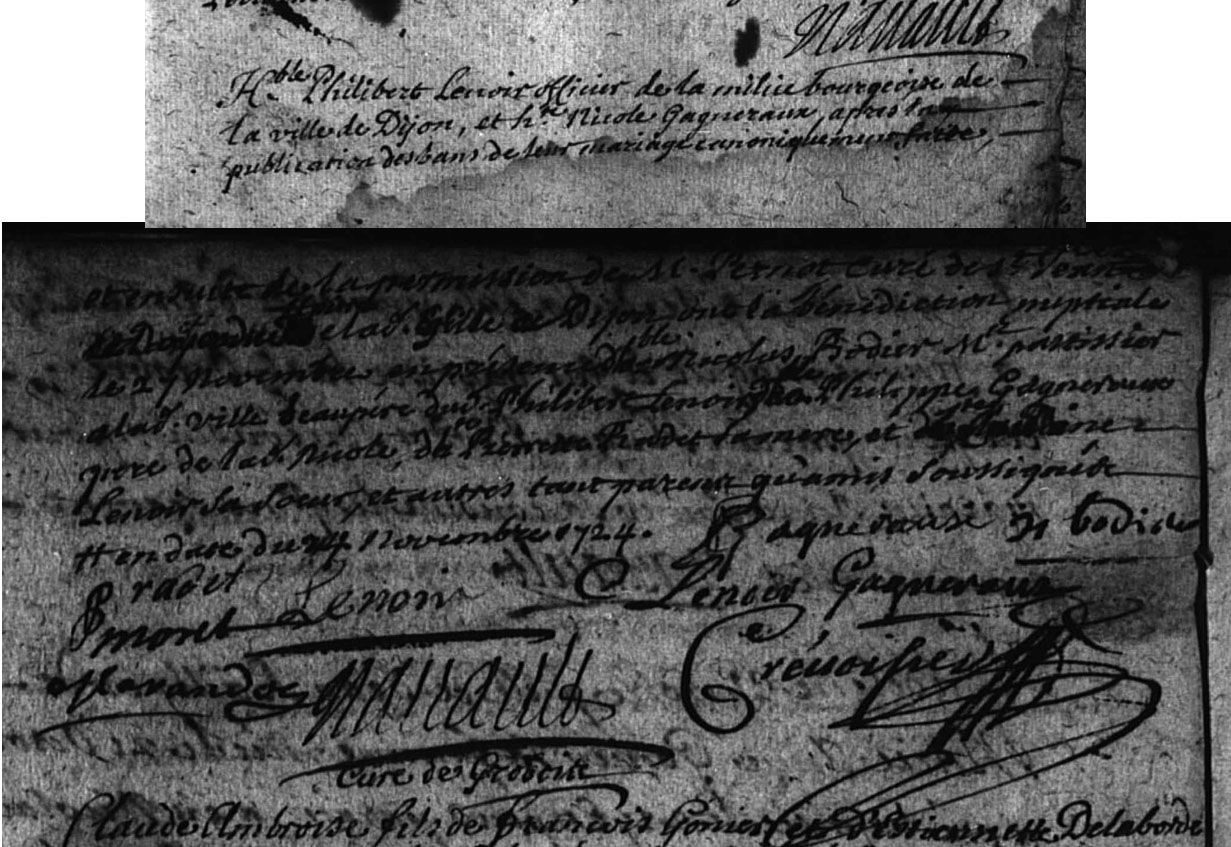 Nanault
H.ble Philibert Lenoir officier de la milice bourgeoise de
la ville de Dijon, et h.te Nicole Gagneraux, apres la
publication des bans de leur mariage canoniquement faite,
et ensuite de la permission de M. Pernot Curé de St. Jean
de la d. Ville de Dijon, ont la bénédiction nuptiale
le 27 Novembre en présence de h.ble Nicolas Bodier M.e patissier
a la d. ville beaupére dud. Philibert Lenoir, Philippe Gagneraux
pere de lad. Nicole, de Pierrette sa mere, et de
Lenoir sa soeur, et autres tant parens qu'amis soussignés
en date du 24 Novembre 1724. P Gagneraux N bodier
P radet Lenoir C Lenoir Gagneraux
P moret
Nanault Crenoisier
Curé de
Claude Ambroise fils de François Gonier et d'Estiennette Delaborde